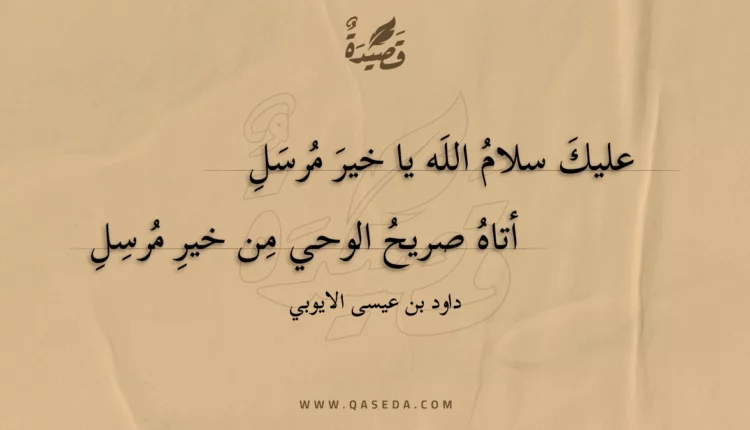 قَصِيْدَةٌ
عليكَ سلامُ اللَه يا خيرَ مُرسَلِ
أتاهُ صريحُ الوحي مِن خيرِ مُرسِلِ
داود بن عيسى الايوبي
WWW.QASEDA.COM